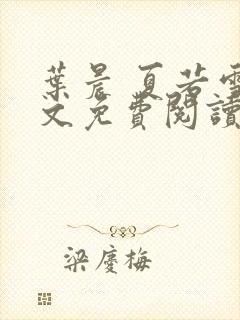 葉晨 夏若雪
文免費閱讀
梁慶梅